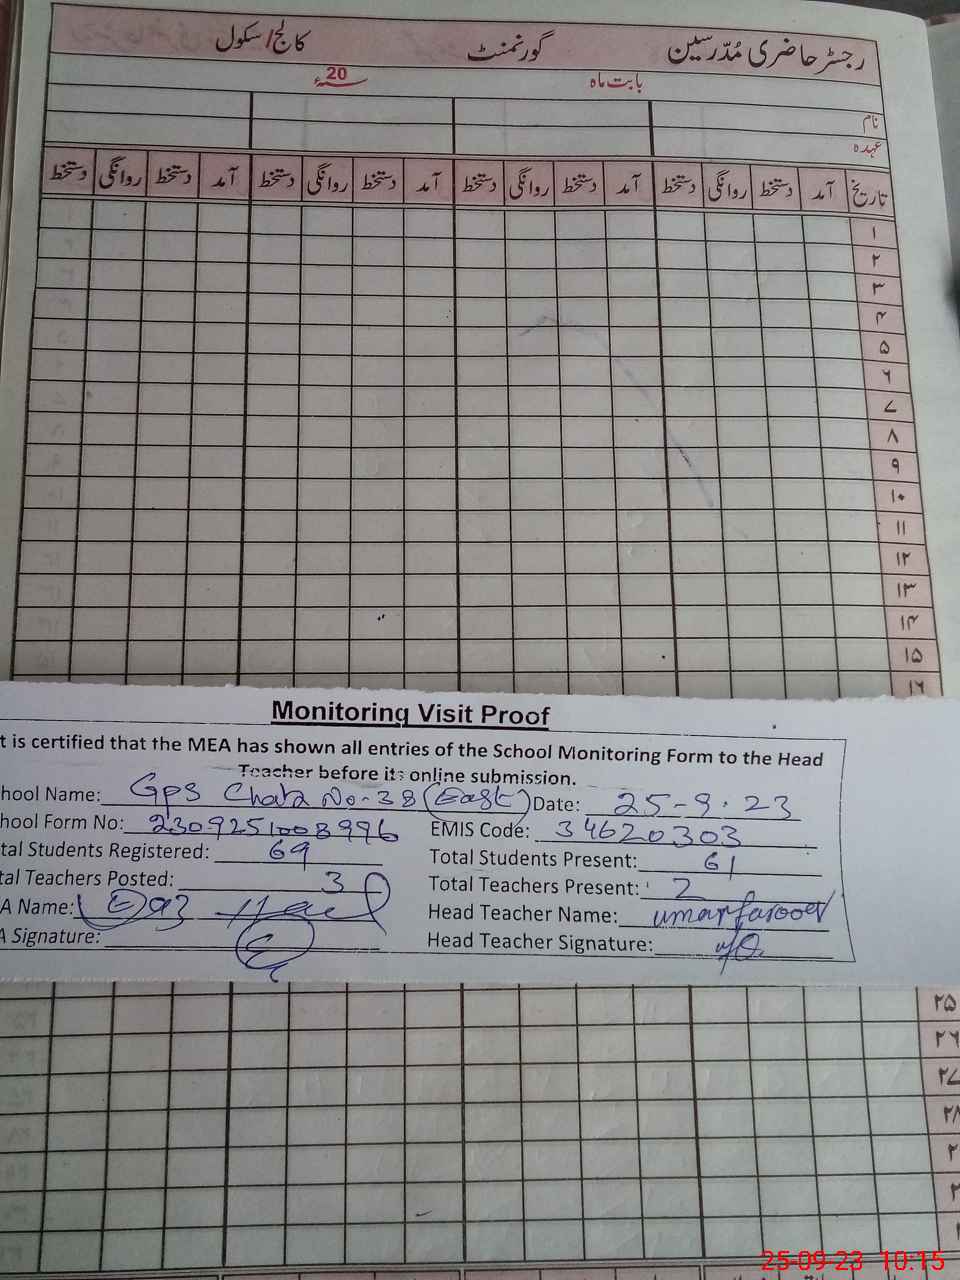 رجسٹر حاضری مُدّرسین گورنمنٹ کالج/سکول
بابت ماہ 20ء
نام
عہدہ
تاریخ آمد دستخط روانگی دستخط آمد دستخط روانگی دستخط آمد دستخط روانگی دستخط آمد دستخط روانگی دستخط
۱
۲
۳
۴
۵
۶
۷
۸
۹
۱۰
۱۱
۱۲
۱۳
۱۴
۱۵
۱۶
Monitoring Visit Proof
t is certified that the MEA has shown all entries of the School Monitoring Form to the Head
Teacher before its online submission.
hool Name: Gps Chak No-38 (East) Date: 25-9-23
hool Form No: 2309251008996 EMIS Code: 34620303
tal Students Registered: 69 Total Students Present: 61
tal Teachers Posted: 3 Total Teachers Present: 2
A Name: Head Teacher Name: umar farooq
A Signature: Head Teacher Signature:
۲۵
۲۶
۲۷
۲۸
25-09-23 10:15